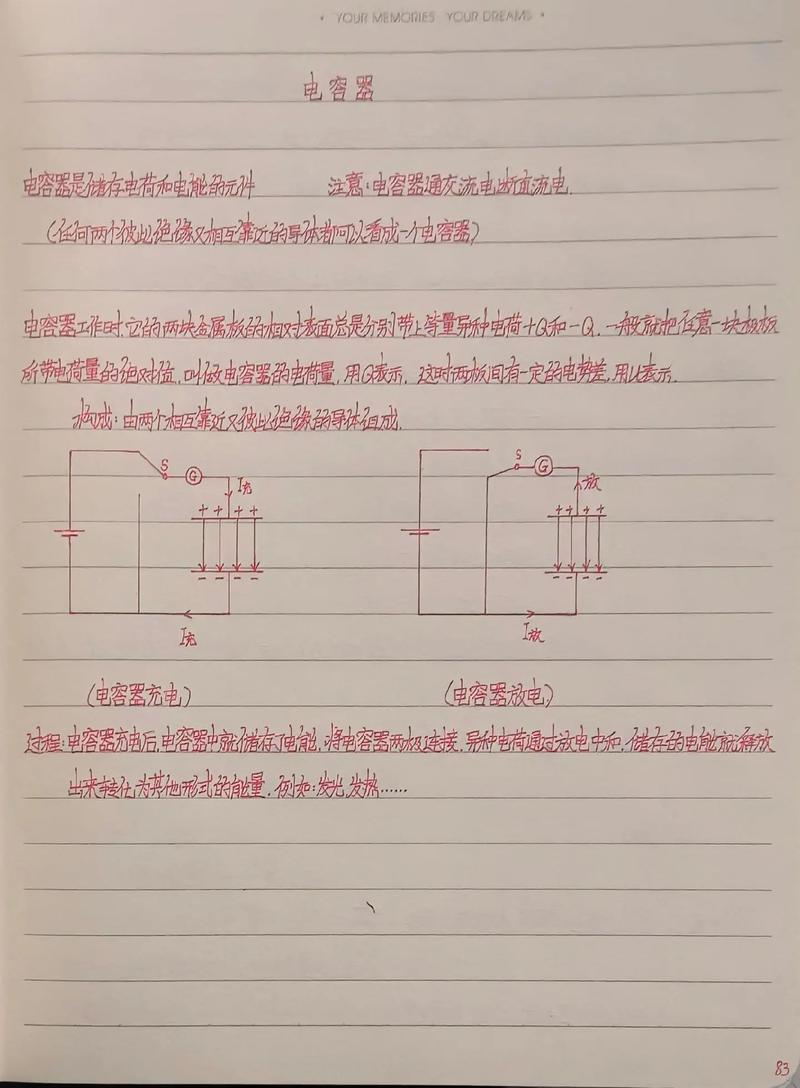 YOUR MEMORIES YOUR DREAMS
电容器
电容器是储存电荷和电能的元件 注意:电容器通交流电,断直流电.
(任何两个彼此绝缘又相互靠近的导体都可以看成一个电容器)
电容器工作时,它的两块金属板的相对表面总是分别带上等量异种电荷+Q和-Q,一般就把任意一块极板
所带电荷量的绝对值,叫做电容器的电荷量,用Q表示,这时两板间有一定的电势差,用U表示.
构成:由两个相互靠近又彼此绝缘的导体组成.
S G I充
+ + + +
- - - -
I充
S G 放
+ + + +
- - - -
I放
(电容器充电) (电容器放电)
过程:电容器充电后,电容器中就储存了电能,将电容器两极连接,异种电荷通过放电中和,储存的电能就释放
出来转化为其他形式的能量.例如:发光,发热……
83